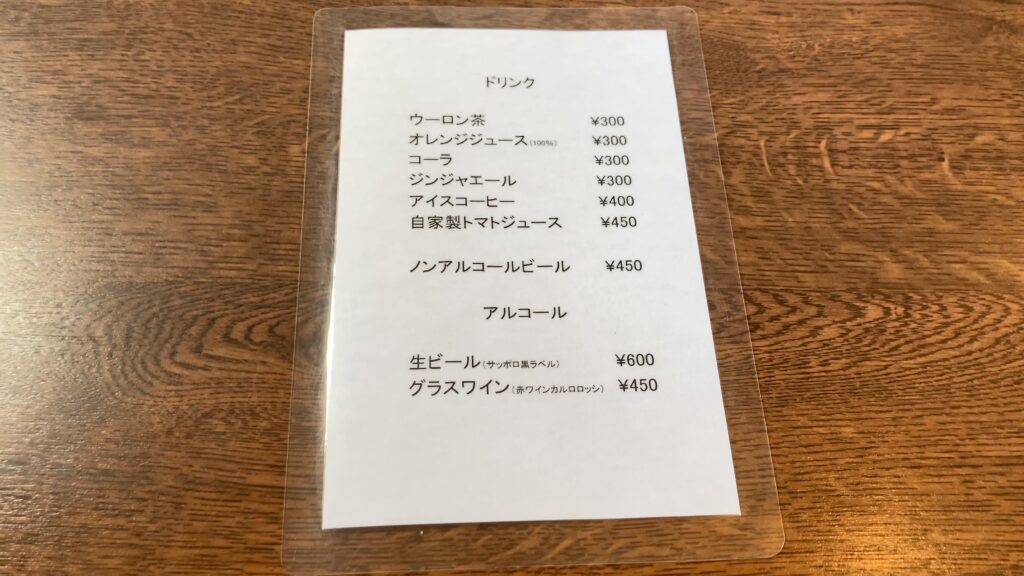 ドリンク
ウーロン茶 ¥300
オレンジジュース(100%) ¥300
コーラ ¥300
ジンジャエール ¥300
アイスコーヒー ¥400
自家製トマトジュース ¥450
ノンアルコールビール ¥450
アルコール
生ビール(サッポロ黒ラベル) ¥600
グラスワイン(赤ワインカルロロッシ) ¥450